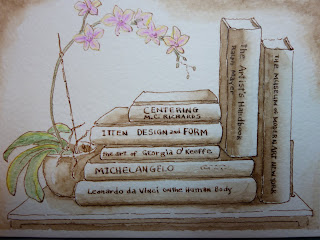 CENTERING
M.C. RICHARDS
ITTEN DESIGN and FORM
The Art of Georgia O'Keeffe
MICHELANGELO
Leonardo da Vinci On the Human Body
The Artist's Handbook
Ralph Mayer
THE MUSEUM OF MODERN ART NEW YORK